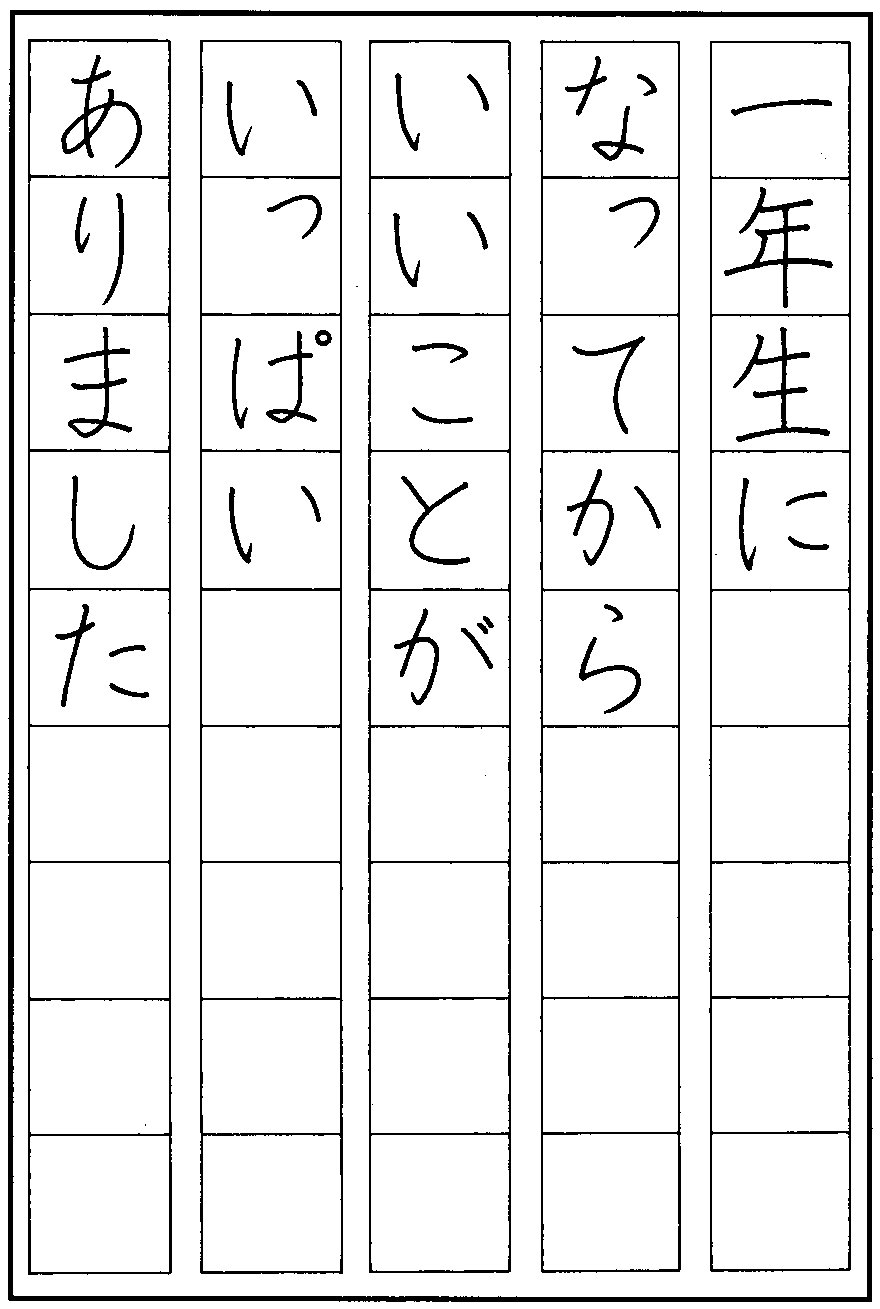 一年生に
なってから
いいことが
いっぱい
ありました